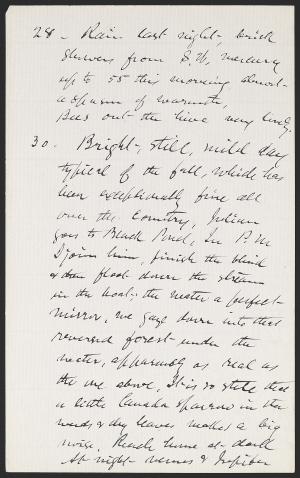 28 - Rain last night, brisk
showers from S.W. mercury
up to 55 this morning almost
a spasm of warmth,
Bees out the hive very lively.
30. Bright, still, mild day
typical of the fall, which has
been exceptionally fine all
over the Country, Julian
goes to Black Pond, In P.M
I join him, finish the blind
& then float down the stream
in the boat; the water a perfect
mirror, we gaze down into that
reversed forest under the
water, apparently as real as
the one above, It is so still that
a little Canada sparrow in the
weeds & dry leaves makes a big
noise. Reach home at dark
At night